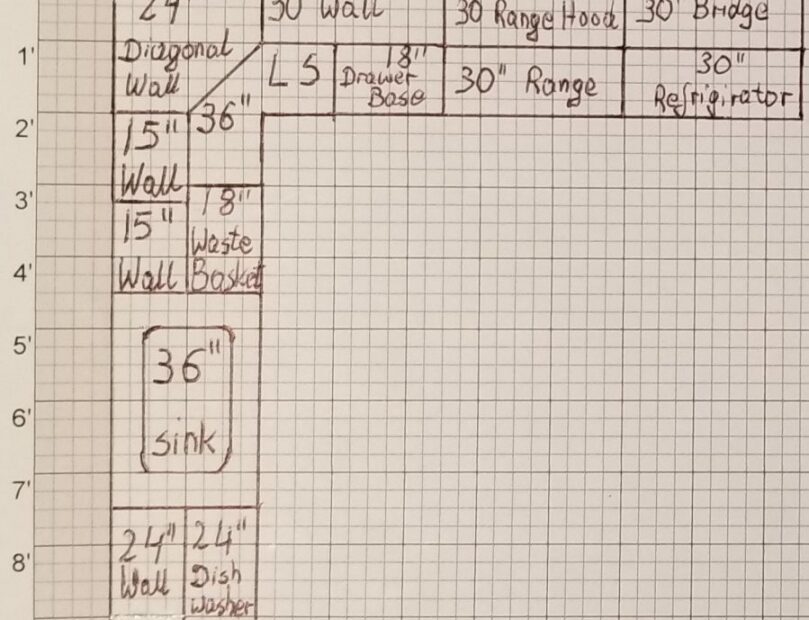 24
30 Wall
30 Range Hood
30" Bridge
1'
Diagonal
Wall
LS
18"
Drawer
Base
30" Range
30"
Refrigirator
2'
15"
Wall
36"
3'
15"
Wall
18"
Waste
Basket
4'
5'
36"
sink
6'
7'
24"
Wall
24"
Dish
washer
8'